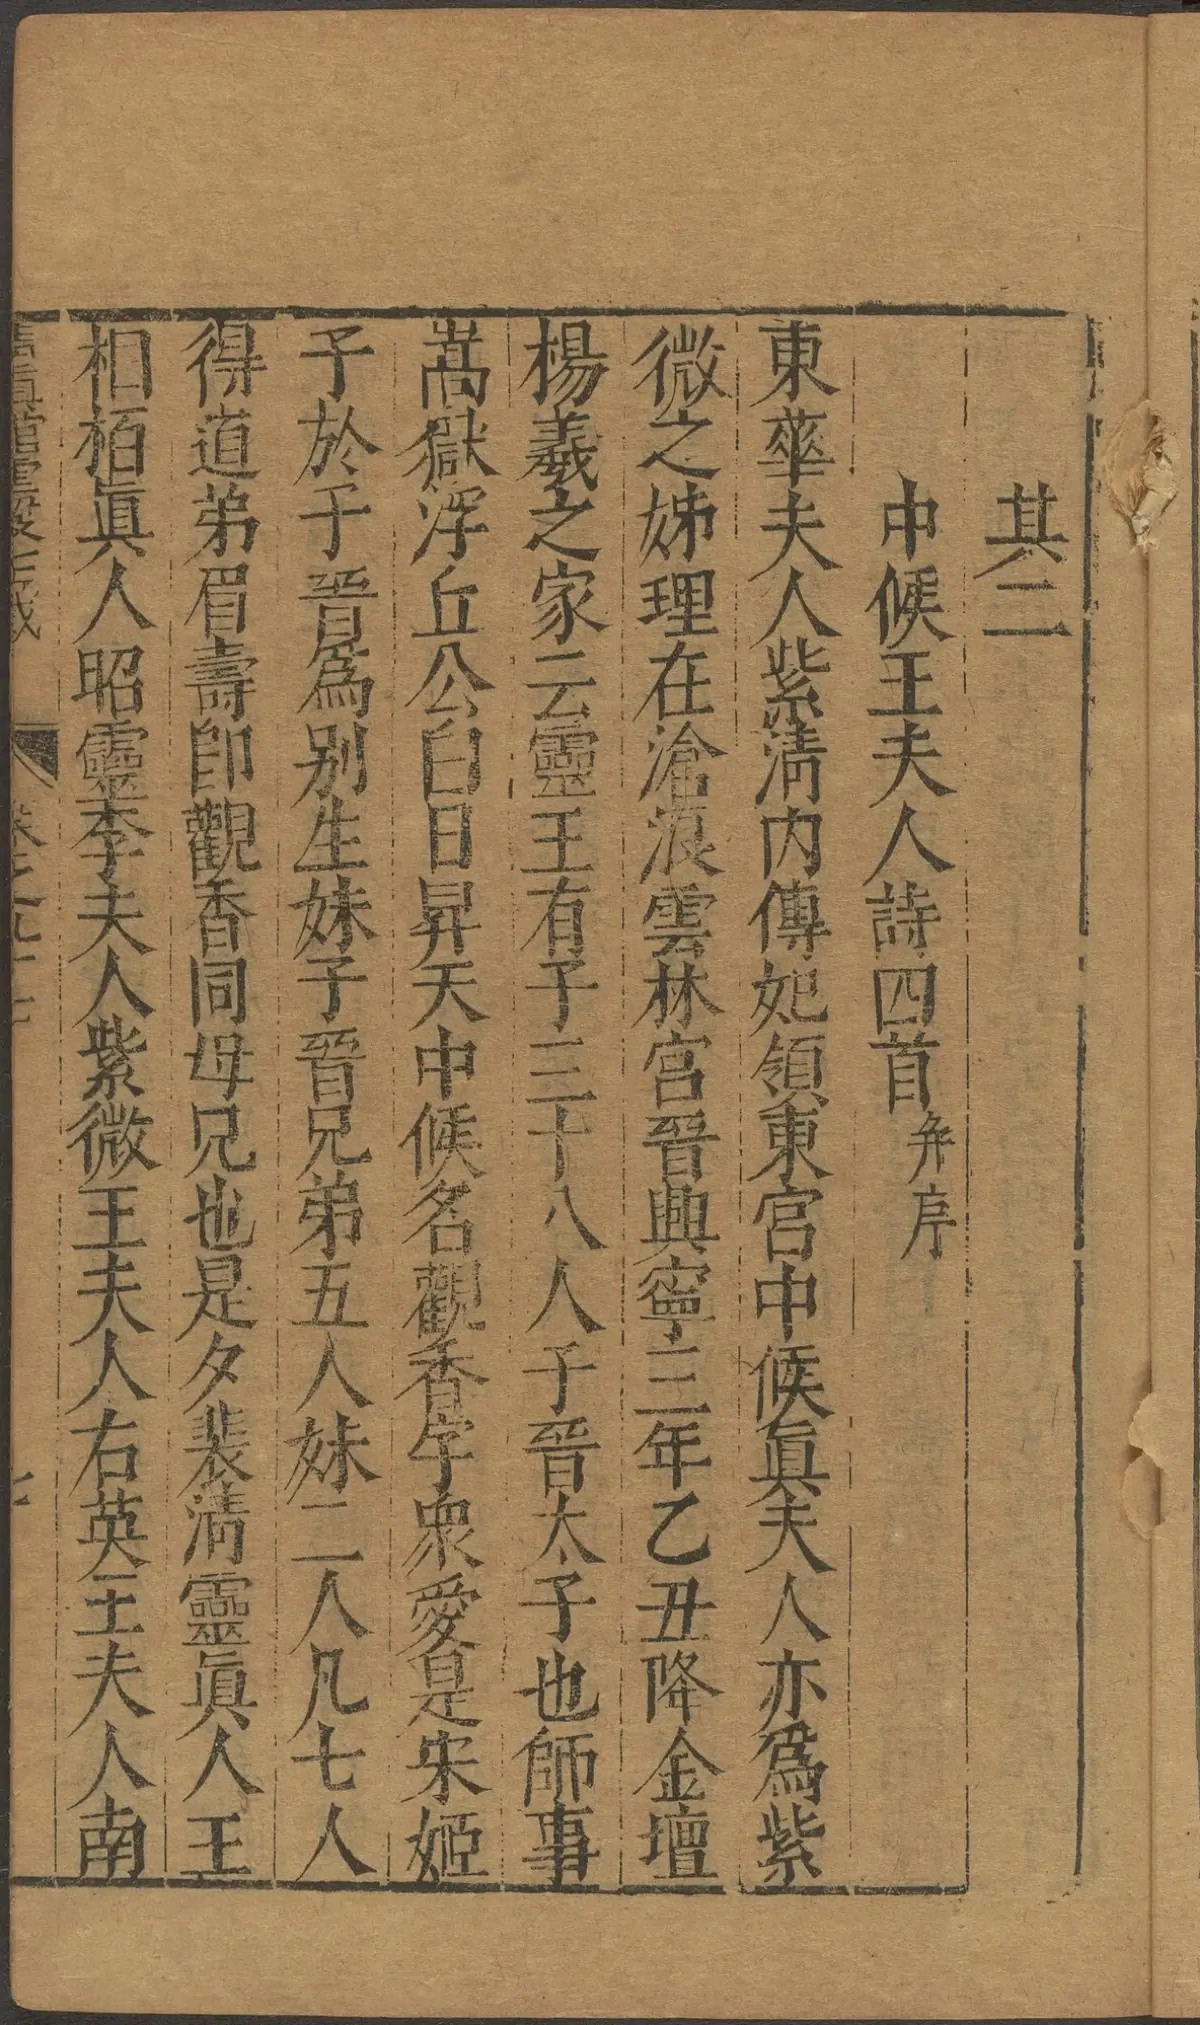 其二
中候王夫人詩四首并序
東華夫人紫清内傳妃領東宮中候眞夫人亦爲紫
微之姊理在滄浪雲林宮晉興寧三年乙丑降金壇
楊羲之家云靈王有子三十八人子晉太子也師事
嵩嶽浮丘公白日昇天中候名觀香字衆愛是宋姬
子於子晉爲别生妹子晉兄弟五人妹二人凡七人
得道弟眉壽卽觀香同母兄也是夕裴清靈眞人王
桐栢眞人昭靈李夫人紫微王夫人右英王夫人南